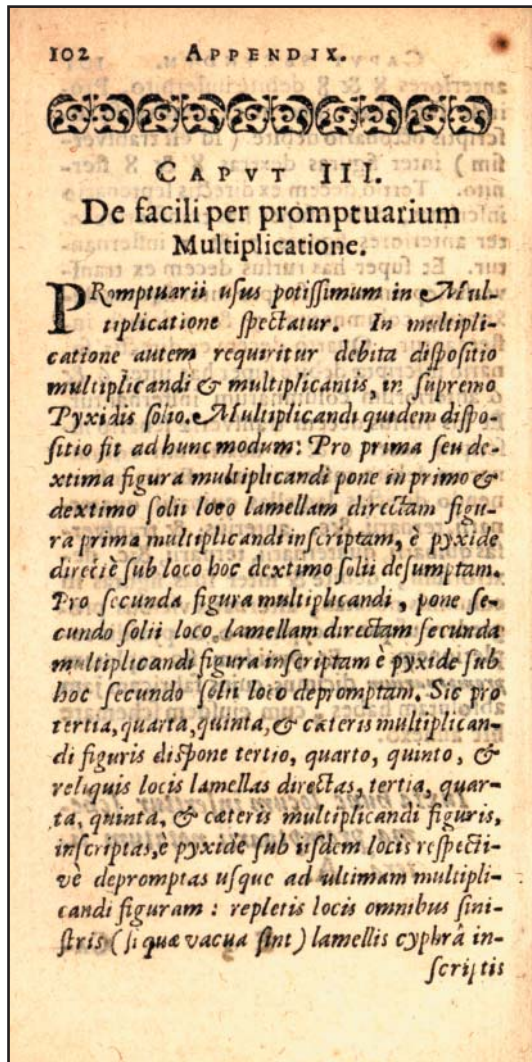 102 APPENDIX.
CAPVT III.
De facili per promptuarium
Multiplicatione.
PRomptuarii uſus potiſſimum in Mul-
tiplicatione ſpectatur. In multipli-
catione autem requiritur debita diſpoſitio
multiplicandi & multiplicantis, in ſupremo
Pyxidis ſolio. Multiplicandi quidem diſpo-
ſitio fit ad hunc modum: Pro prima ſeu de-
xtima figura multiplicandi pone in primo &
dextimo ſolii loco lamellam directam figu-
ra prima multiplicandi inſcriptam, è pyxide
directè ſub loco hoc dextimo ſolii deſumptam.
Pro ſecunda figura multiplicandi, pone ſe-
cundo ſolii loco lamellam directam ſecunda
multiplicandi figura inſcriptam è pyxide ſub
hoc ſecundo ſolii loco depromptam. Sic pro
tertia, quarta, quinta, & cæteris multiplican-
di figuris diſpone tertio, quarto, quinto, &
reliquis locis lamellas directas, tertia, quar-
ta, quinta, & cæteris multiplicandi figuris,
inſcriptas, è pyxide ſub iiſdem locis reſpecti-
vè depromptas uſque ad ultimam multipli-
candi figuram: repletis locis omnibus ſini-
ſtris (ſi quæ vacua ſint) lamellis cyphrâ in-
ſcriptis